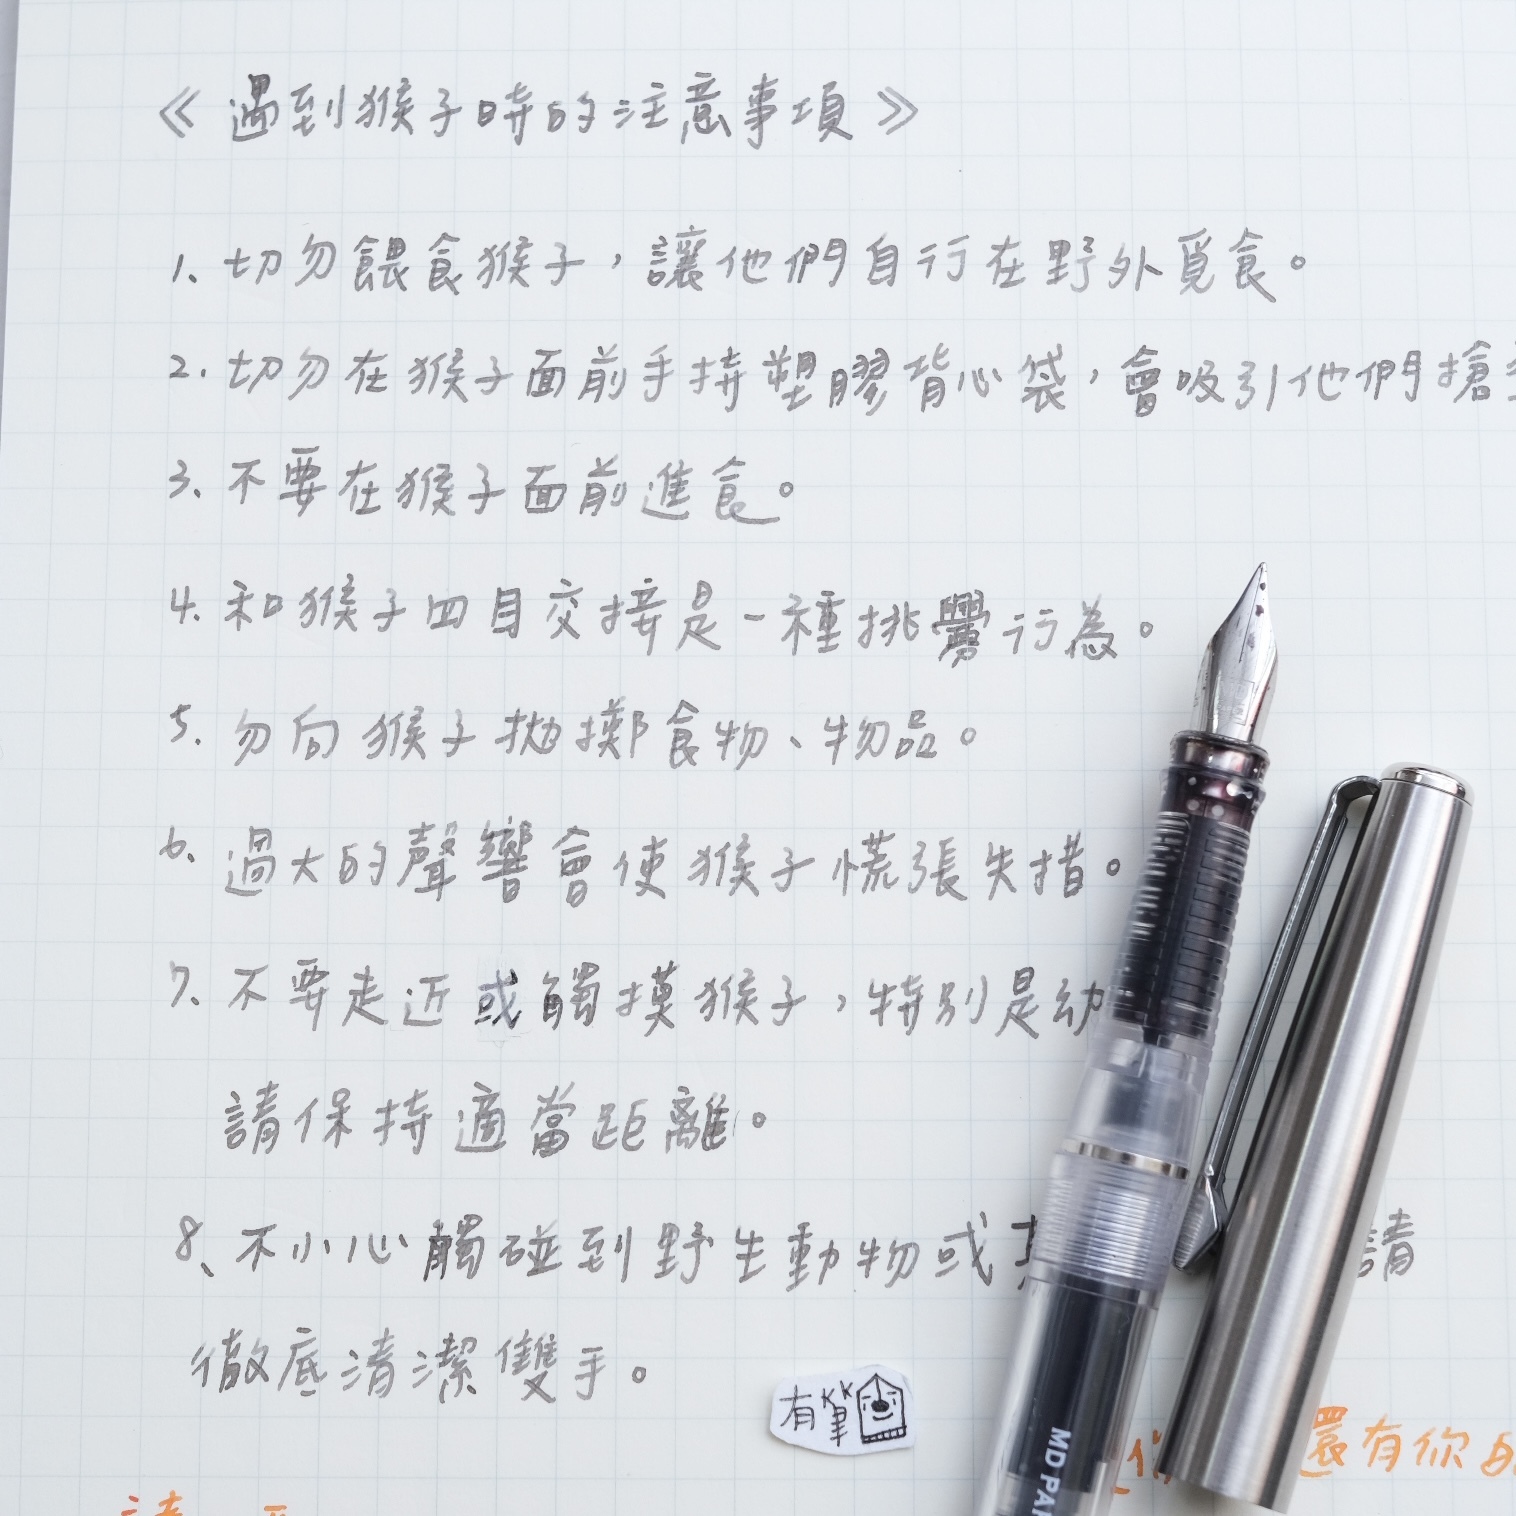 《遇到猴子時的注意事項》
1、切勿餵食猴子，讓他們自行在野外覓食。
2、切勿在猴子面前手持塑膠背心袋，會吸引他們搶
3、不要在猴子面前進食。
4、和猴子四目交接是一種挑釁行為。
5、勿向猴子拋擲食物、物品。
6、過大的聲響會使猴子慌張失措。
7、不要走近或觸摸猴子，特別是幼
請保持適當距離。
8、不小心觸碰到野生動物或 請
徹底清潔雙手。
有筆
MD PA
還有你